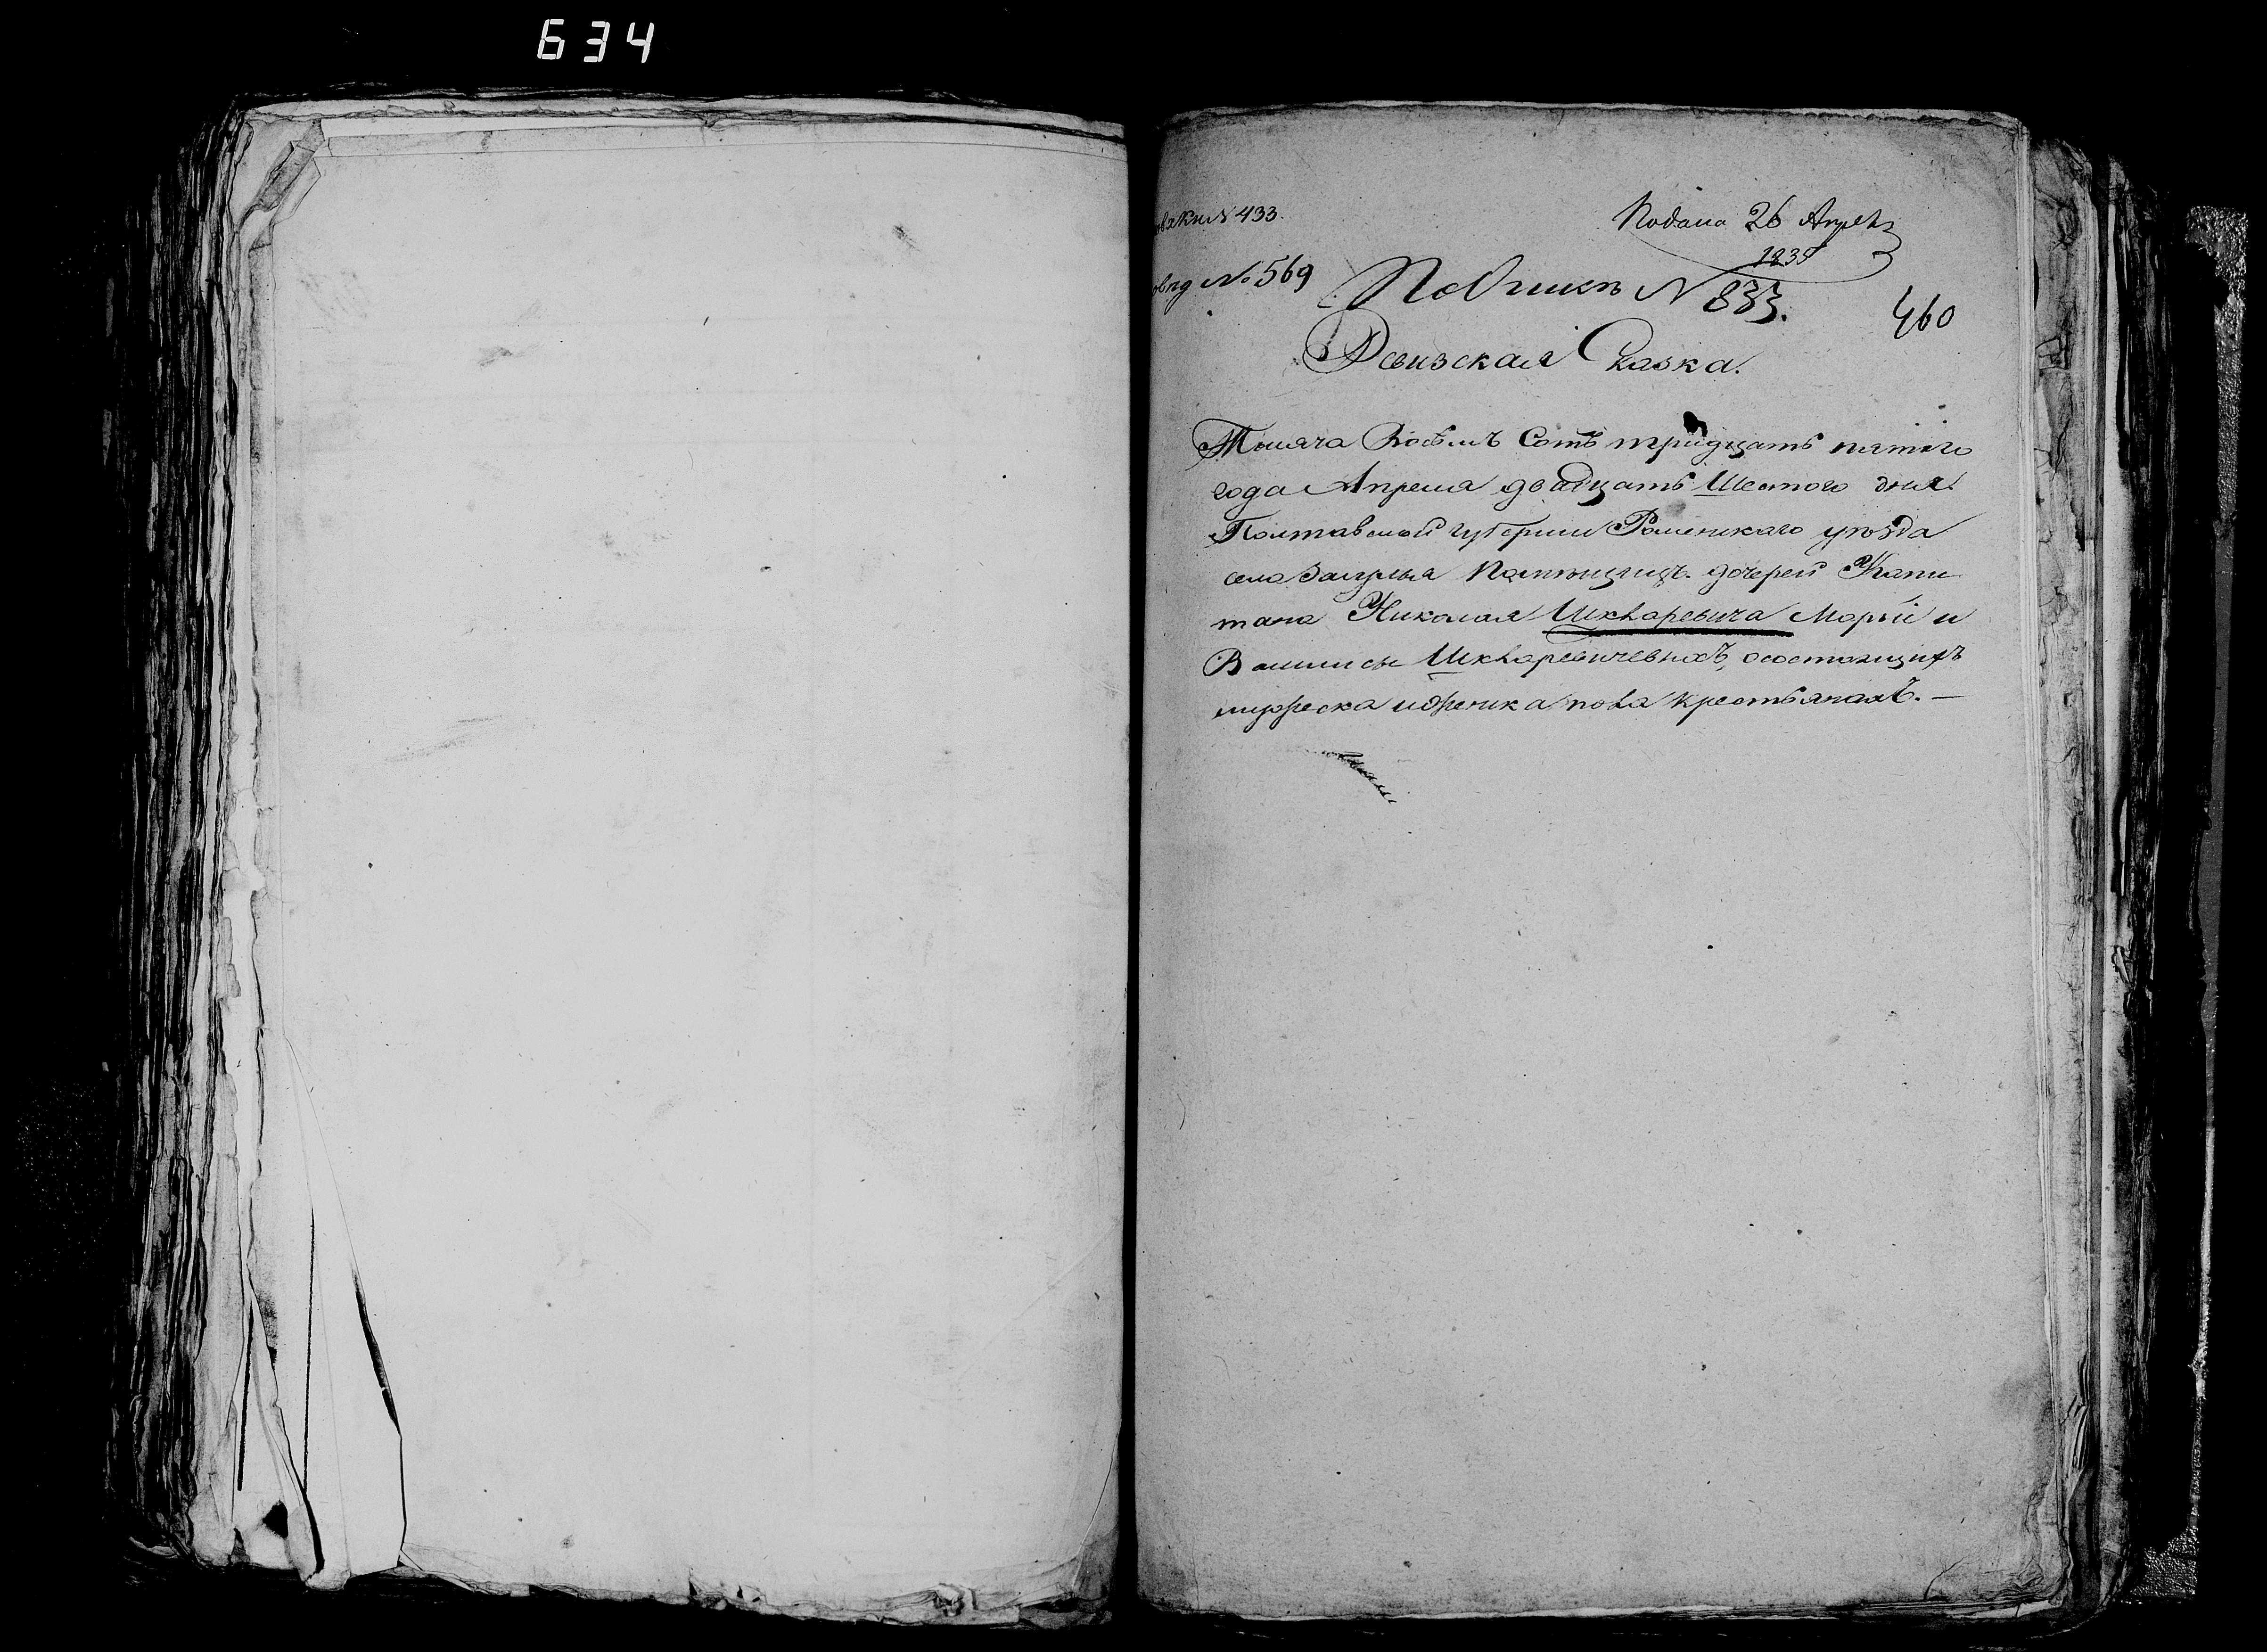 634
кн № 433.
Подана 26 Апреля
1835
№ 569
По Описи № 833.
460
Ревизская Сказка.
Тысяча Восемъ Сотъ тридцать пятого
года Апреля двадцать Шестого дня
Полтавской губернии Роменскаго уезда
села Помещицъ дочерей Капи
тана Николая Шкляревича Марьи и
Шкляревичевыхъ, осостоящихъ
мужеска иженска пола крестьянахъ. —